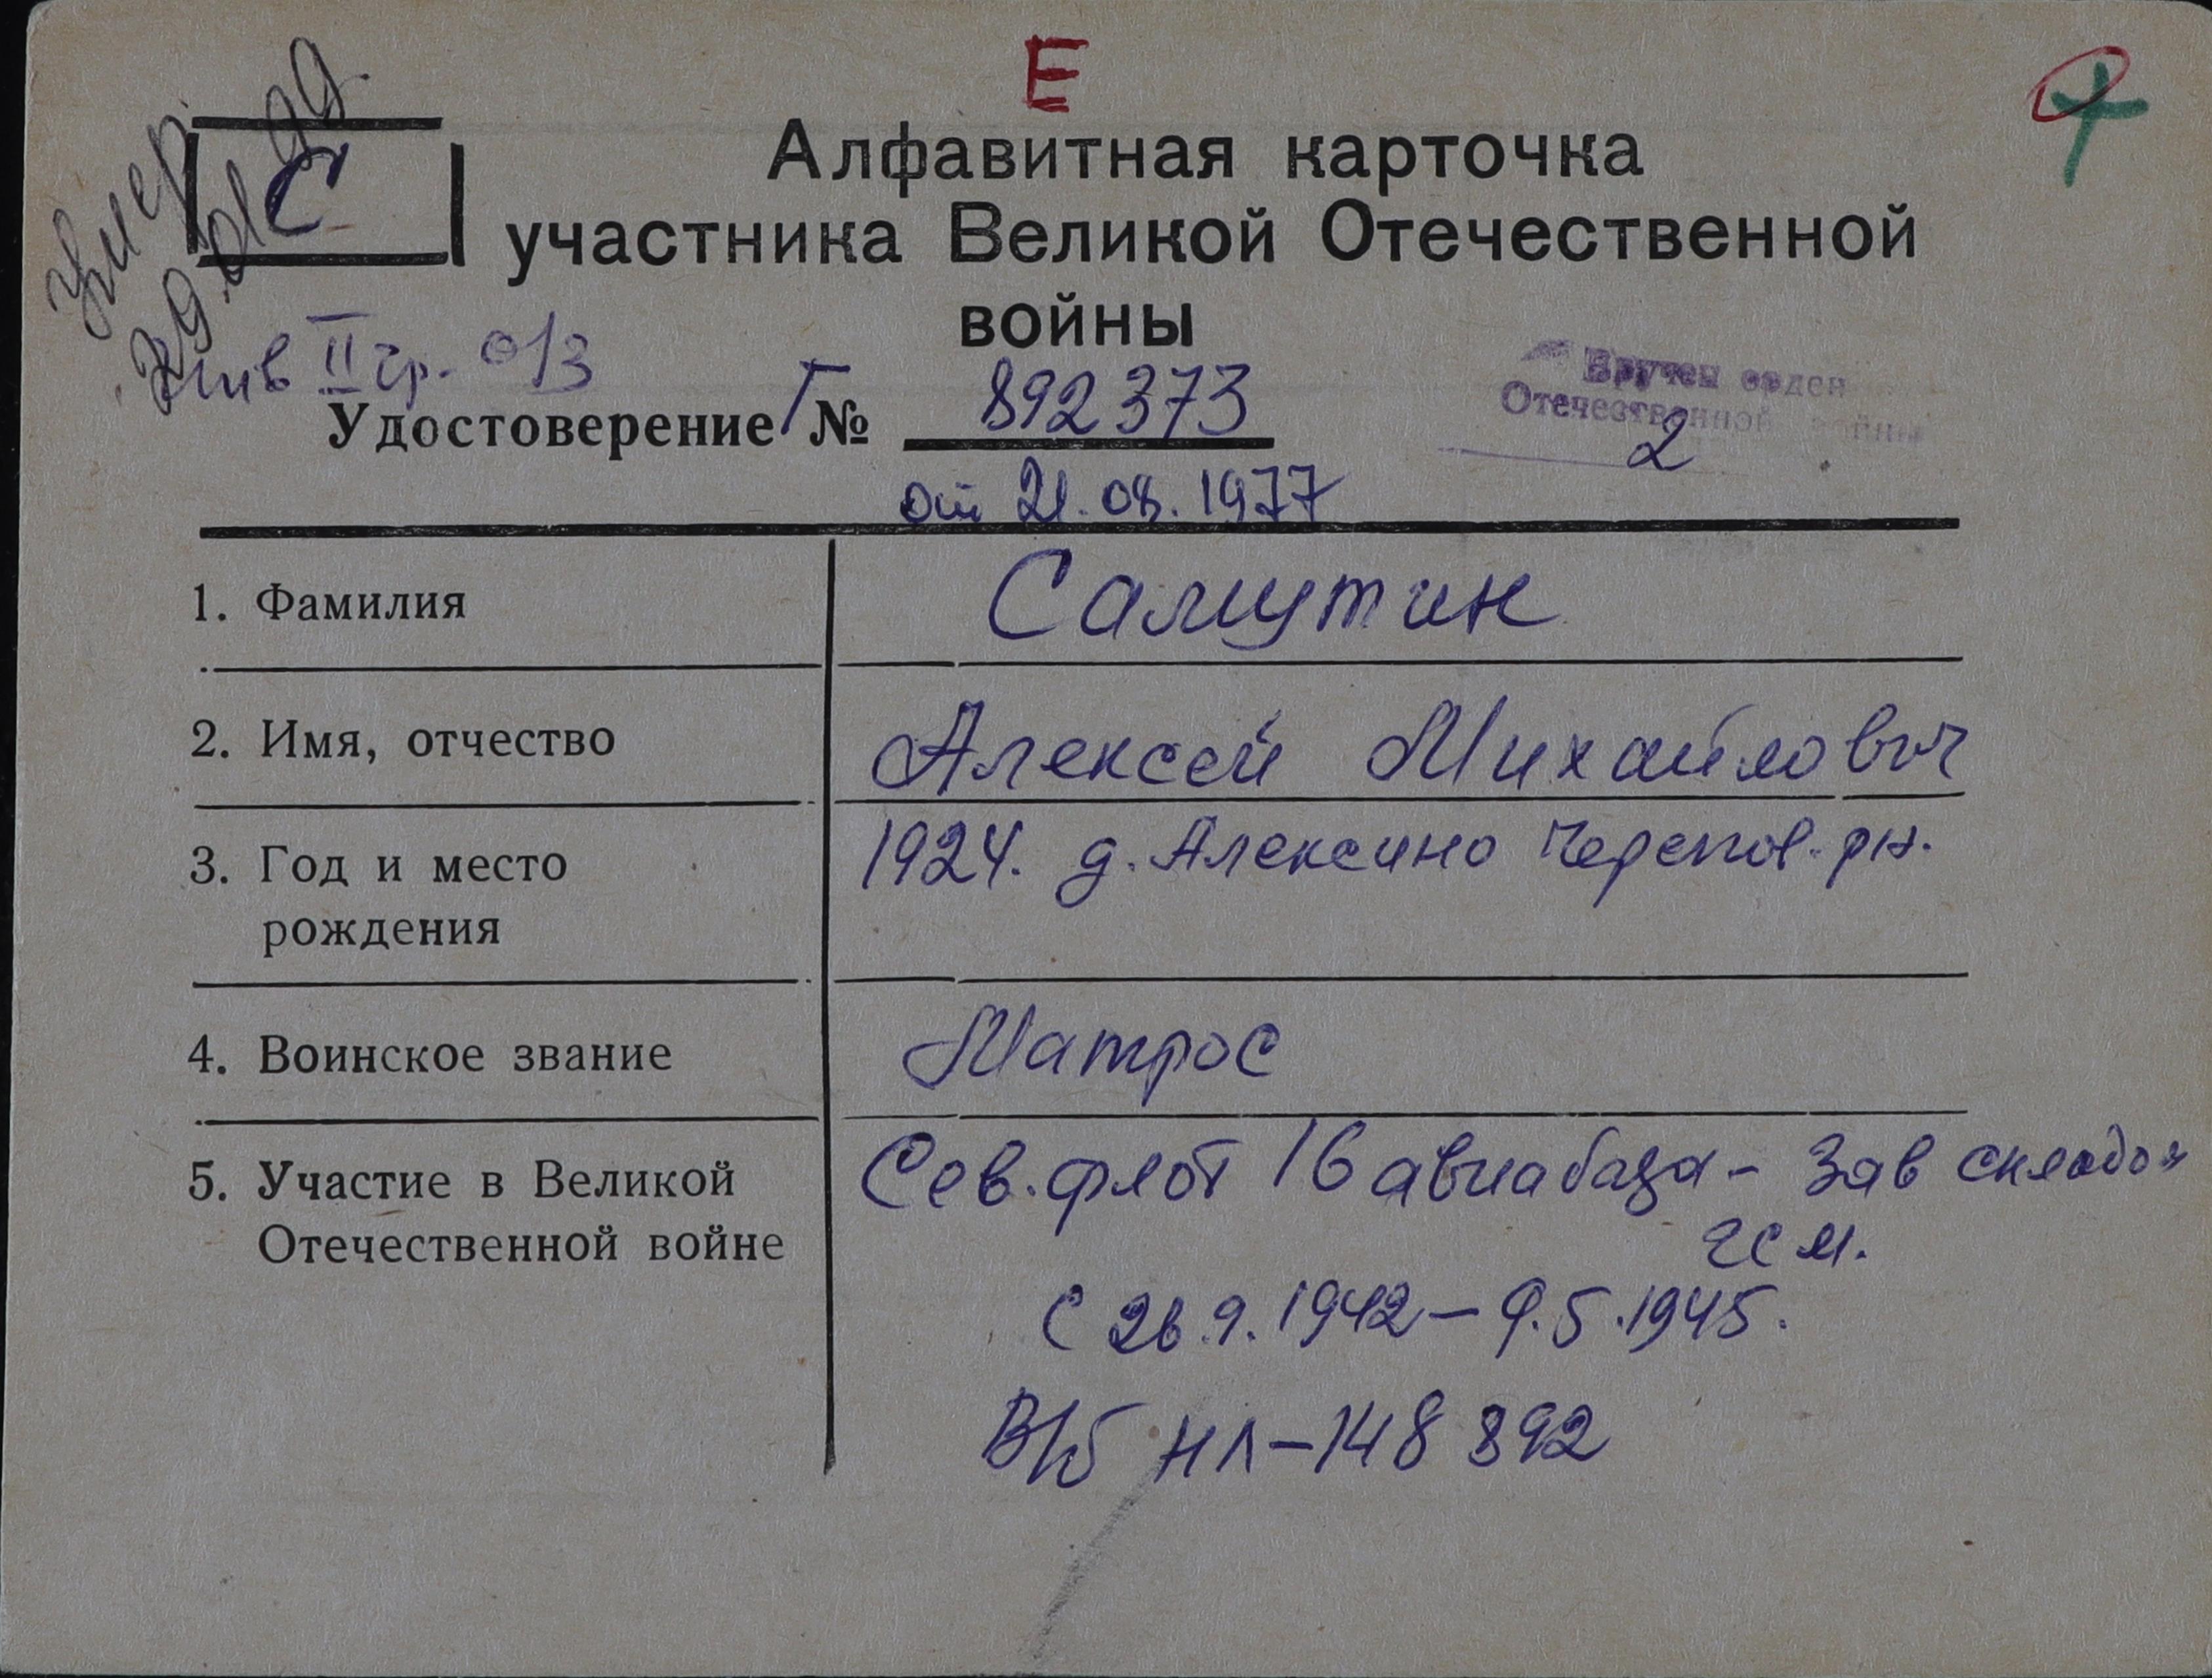 Е
Умер
29.01.99
С
Алфавитная карточка
участника Великой Отечественной
войны
Инв II гр. о/з
Удостоверение Г № 892373
от 21.08.1977
Вручен орден
Отечественной войны
2
1. Фамилия Самутин
2. Имя, отчество Алексей Михайлович
3. Год и место 1924. д. Алексино Черепов. рн.
рождения
4. Воинское звание Матрос
5. Участие в Великой Сев. флот 16 авиабаза - Зав складом
Отечественной войне гсм.
С 26.9.1942 - 9.5.1945.
В/б НЛ-148 892